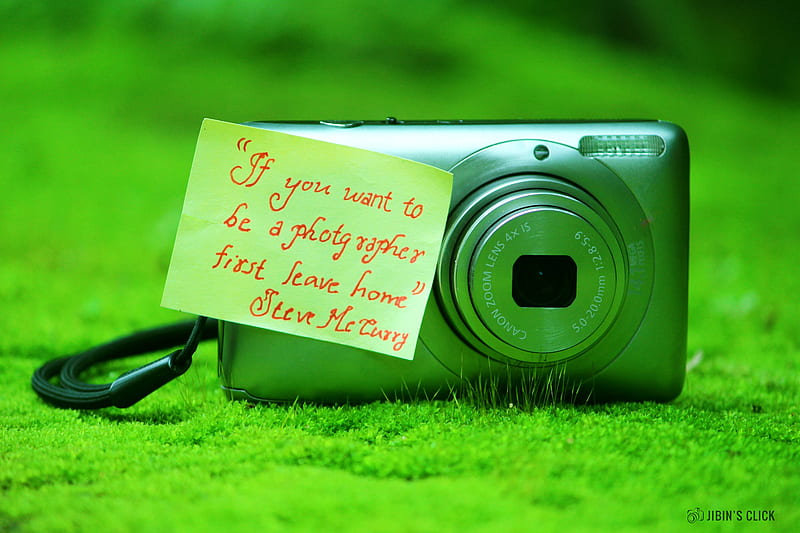 “If you want to
be a photographer
first leave home”
Steve McCurry
CANON ZOOM LENS 4x IS
5.0-20.0mm 1:2.8-5.9
JIBIN'S CLICK